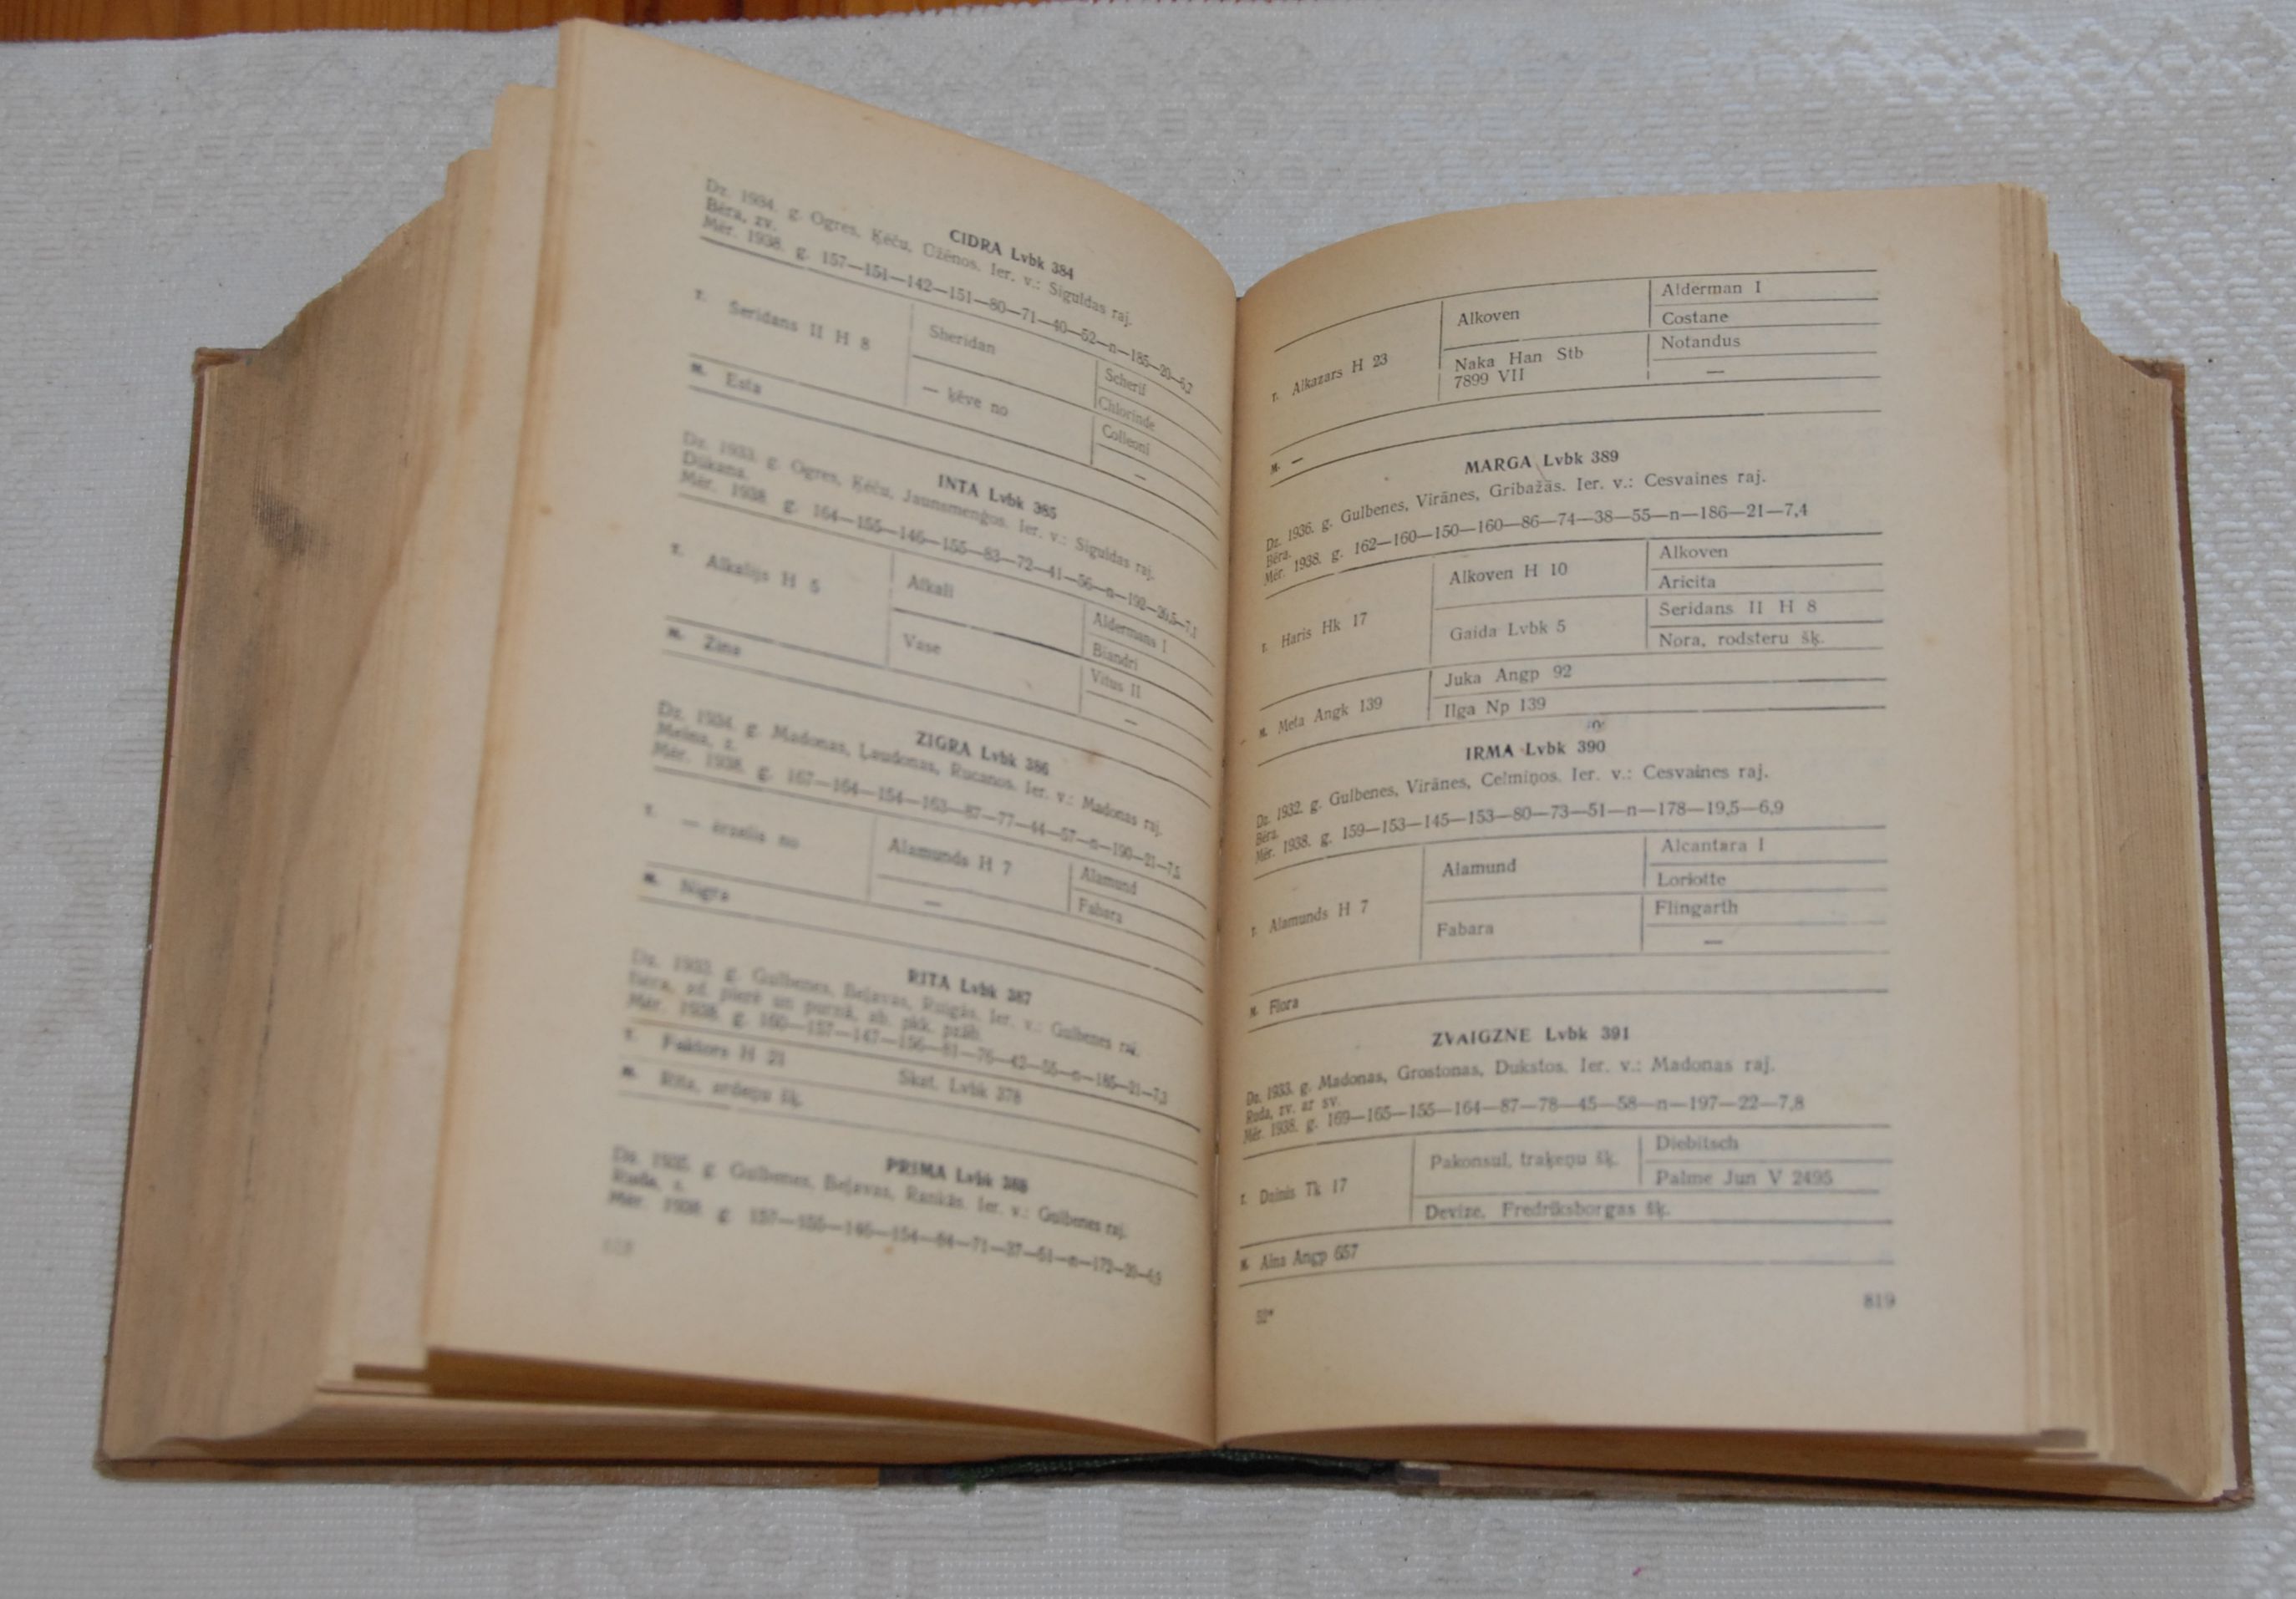 CIDRA Lvbk 384
Dz. 1934. g. Ogres, Ķēču, Ozēnos. Ier. v.: Siguldas raj.
Bēra, zv.
Mēr. 1938. g. 157—151—142—151—80—71—40—52—n—185—20—6,7
T. Seridans II H 8
Sheridan
Scherif
Chlorinde
— ķēve no
Colleoni
—
M. Esta
INTA Lvbk 385
Dz. 1933. g. Ogres, Ķēču, Jaunsmeņģos. Ier. v.: Siguldas raj.
Dūkana.
Mēr. 1938. g. 164—155—146—155—83—72—41—56—n—192—20,5—7,1
T. Alkalijs H 5
Alkali
Aldermans I
Biandri
Vase
Vitus II
—
M. Zina
ZIGRA Lvbk 386
Dz. 1934. g. Madonas, Ļaudonas, Rucanos. Ier. v.: Madonas raj.
Melna, z.
Mēr. 1938. g. 167—164—154—163—87—77—44—57—n—190—21—7,5
T. — ērzelis no
Alamunds H 7
Alamund
Fabara
—
M. Nigra
RITA Lvbk 387
Dz. 1933. g. Gulbenes, Beļavas, Ruņģās. Ier. v.: Gulbenes raj.
Bēra, pierē un purnā, ab. pkk.
Mēr. 1938. g. 160—157—147—156—81—76—42—55—n—185—21—7,3
T. Faktors H 21
Skat. Lvbk 378
M. Rita, ardeņu šķ.
PRIMA Lvbk 388
Dz. g. Gulbenes, Beļavas, Rankās. Ier. v.: Gulbenes raj.
Ruda, z.
Mēr. 1938. g. 157—155—146—154—84—71—37—51—n—172—20—6,9
T. Alkazars H 23
Alkoven
Alderman I
Costane
Naka Han Stb
7899 VII
Notandus
—
M. —
MARGA Lvbk 389
Dz. 1936. g. Gulbenes, Virānes, Gribažās. Ier. v.: Cesvaines raj.
Bēra.
Mēr. 1938. g. 162—160—150—160—86—74—38—55—n—186—21—7,4
T. Haris Hk 17
Alkoven H 10
Alkoven
Aricita
Gaida Lvbk 5
Seridans II H 8
Nora, rodsteru šķ.
M. Meta Angk 139
Juka Angp 92
Ilga Np 139
IRMA Lvbk 390
Dz. 1932. g. Gulbenes, Virānes, Celmiņos. Ier. v.: Cesvaines raj.
Bēra.
Mēr. 1938. g. 159—153—145—153—80—73—51—n—178—19,5—6,9
T. Alamunds H 7
Alamund
Alcantara I
Loriotte
Fabara
Flingarth
—
M. Flora
ZVAIGZNE Lvbk 391
Dz. 1933. g. Madonas, Grostonas, Dukstos. Ier. v.: Madonas raj.
Ruda, zv. ar sv.
Mēr. 1938. g. 169—165—155—164—87—78—45—58—n—197—22—7,8
T. Dainis Tk 17
Pakonsul, traķeņu šķ.
Diebitsch
Palme Jun V 2495
Devize, Fredriksborgas šķ.
M. Aina Angp 657
52*
819